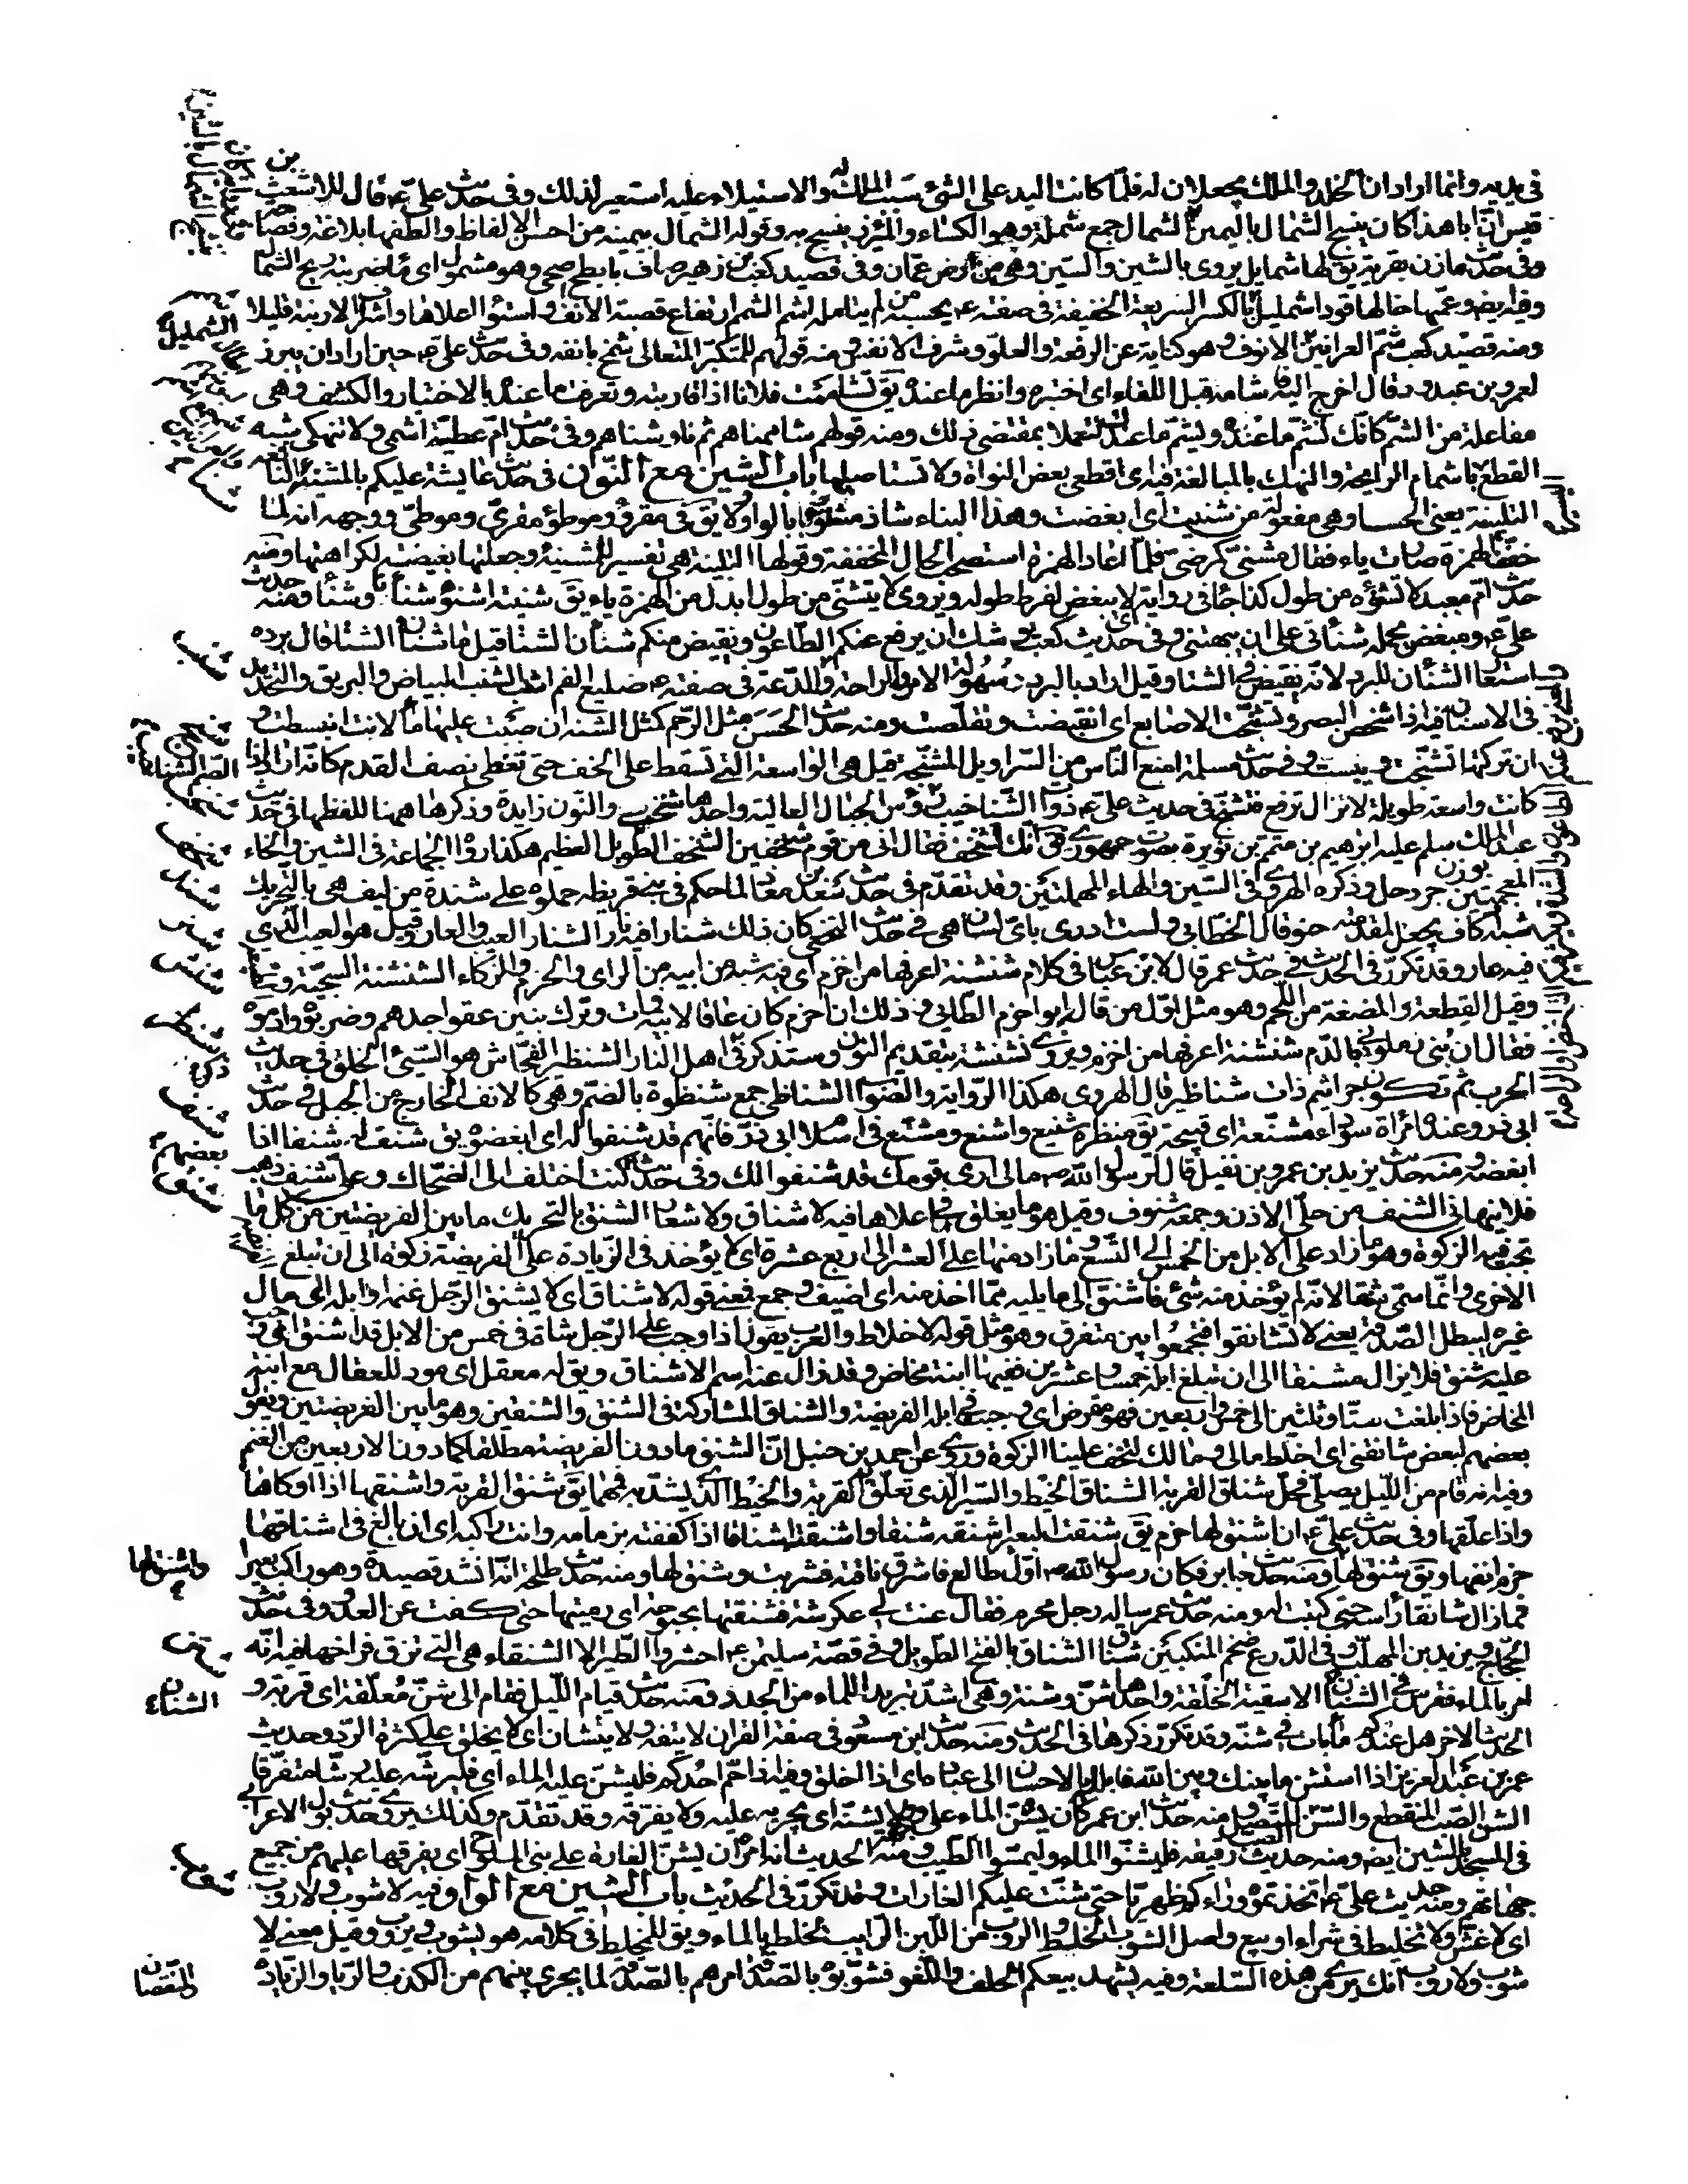 في يديه وانما اراد ان الخلد والملك يجعلان له فلمّا كانت اليد على الشئ سبب الملك له والاستيلاء عليه استعير لذلك وفى حدث علىّ ع قال للاشعث بن
قيس انّ ابا هذا كان ينسج الشمال باليمين الشمال جمع شملة وهو الكساء والمئزر ينسج به وقوله الشمال بيمينه من احسن الالفاظ والطفها بلاغة وفصاحة
وفى حدّث مازن بقرية يق لها شمايل يروى بالشين والسّين وهى من ارض عمّان وفى قصيد كعب بن زهير صاف بابطح اضحى وهو مشمول اى ماء ضربته ريح الشمال
وفيه ايض وعمّها خالها قوداء شمليل بالكسر السريعة الخفيفة فى صفته ع يحسبه من لم يتامله اشم الشمم ارتفاع قصبة الانف واستواء اعلاها واشراف الارنبة قليلا
ومنه قصيد كعب شمّ العرانين الانوف وهو كناية عن الرفعة والعلوّ وشرف الانفس ومنه قولهم للمتكبّر المتعالى شمخ بانفه وفى حدّث علىّ ع حين اراد ان يبرز
لعمرو بن عبدود قال اخرج اليه فاشامه قبل اللقاء اى اختبره وانظر ما عنده يق شاممت فلانا اذا قاربته وتعرفت ما عنده بالاختبار والكشف وهى
مفاعلة من الشم كانّك تشمّ ما عنده ويشمّ ما عندك لتعملا بمقتضى ذلك ومنه قولهم شاممناهم ثم ناوشناهم وفى حدث امّ عطيّة اشمى ولا تنهكى شبه
القطع باشمام الرايحة والنهك بالمبالغة فيه اى اقطعى بعض النواة ولا تستاصليها باب الشين مع النّون فى حدّث عايشة عليكم بالمشنيئة النافعة
التلبينة يعنى الحسا وهى مفعولة من شنيت اى ابغضت وهذا البناء شاذ مشنوّا بالواو ولا يق فى مقروء وموطوء مقرىّ وموطىّ ووجهه انه لمّا
خفّف الهمزة صارت ياء فقال مشنىّ كرضىّ فلمّا اعاد الهمزة استصحب الحال المخففة وقولها التلبينة هى تفسير للمشنيئة وجعلتها بغيضة لكراهتها ومنه
حدث امّ معبد لا تشنؤه من طول كذا جاء فى رواية اى لا يبغض لفرط طوله ويروى لا يتشنّى من طول ابدل من الهمزة ياء يق شنيته اشنؤه شنأ وشنأنا ومنه حديث
علىّ ع ومبغض يحمله شناٰنى على ان يبهتنى وفى حديث كعب يوشك ان يرفع عنكم الطاعون ويفيض منكم شنأن الشتا قيل ما شنأن الشتا قال برده
استعار الشنأن للبرد لانه يفيض فى الشتا وقيل اراد بالبرد سُهُولة الامر والراحة والدّعة فى صفته ع ضليع الفم اشنب الشنب البياض والبريق والتحديد
فى الاسنان فيه اذا شخص البصر وتشنّجت الاصابع اى انقبضت وتقلّصت ومنه حدّث الحَسَن مثل الرّحم كمثل الشنة ان صببت عليها ماء لانت وانبسطت
وان تركتها تشنّجت ويبست وفى حدّث مسلمة امنع النّاس من السّراويل المشنّجة قيل هى الواسعة التى تسقط على الخف حتى تغطى نصف القدم كانّه اراد اذا
كانت واسعة طويلة لا تزال ترفع فتتشنّج فى حديث علىّ ع ذوات الشّناخيب رؤس الجبال العالية واحدها شنخوب والنّون زايدة وذكرها ههنا للفظها فى حدّث
عبد الملك سلم عليه ابرهيم بن متمم بن نويرة بصوت جهورى فق انّك لشنّخف فقال انى من قوم شنّخفين الشنّخف الطّويل العظيم هكذا رواه الجماعة فى الشين والخاء
المعجمتين بوزن جردحل وذكره الهروى فى السّين والحاء المهملتين وقد تقدّم فى حدّث سَعد بن معاذ لما حكم فى بنى قريظة حملوه على شندة من ليف هى بالتحريك
شبه اكاف يجعل لمقدمته حنو قال الخطابى ولست ادرى باىّ لسان هى فى حدّث النخعى كان ذلك شنارا فيه نار الشنار العيب والعار وقيل هو العيب الذى
فيه عار وقد تكرّر فى الحدث فى حدّث عمر قال لابن عباس فى كلام شنشنة اعرفها من اخزم اى فيه شبه من ابيه من الراى والحزم والذكاء الشنشنة السّجيّة والطبيعة
وقيل القطعة والمضغة من اللّحم وهو مثل اوّل من قال ابو اخزم الطّايى وذلك ان اخزم كان عاقا لابيه فمات وترك بنين عقّوا جدهم وضربوه وادموه
فقال ان بنىّ زملونى بالدّم شنشنة اعرفها من اخزم ويروى نشنشة بتقديم النون وستذكر فى اهل النار الشنظير الفحّاش هو السّيئ الخلق فى حديث
الحرب ثم تكون جراثيم ذات شناظير قال الهروى هكذا الرّواية والصّواب الشناظى جمع شنظوة بالضم وهى كالانف الخارج من الجبل فى حدّث
ابى ذر وعنده امراة سوداء مشنّعة اى قبيحة يق منظر شنيع واشنع ومشنّع فى اسلام ابى ذرّ فانّهم قد شنفوا له اى ابغضوه يق شنف له شنفا اذا
ابغضه ومنه حدّث يزيد بن عمرو بن نفيل قال لرسول الله ص ما لى ارى قومك قد شنفوا لك وفى حدث بعضهم كنت اختلف الى الضّحاك وعلىّ شنف ذهب
فلا ينهانى الشنف من حلىّ الاذن وجمعه شنوف وقيل هو ما يعلق فى اعلاها فيه لا شناق ولا شغار الشنق بالتحريك ما بين الفريضتين من كل ما
تجب فيه الزكوة وهو ما زاد على الابل من الخمس الى التّسع وما زاد منها على العشر الى اربع عشرة اى لا يؤخذ فى الزّيادة على الفريضة زكوة الى ان تبلغ
الاخرى وانّما سمّى شنقا لانّه لم يؤخذ منه شئ فاشنق الى ما يليه ممّا اخذ منه اى اضيف وجمع فمعنى قوله لا شناق اى لا يشنق الرّجل غنمه او ابله الى مال
غيره ليبطل الصّدقة يعنى لا تشانقوا فتجمعوا بين متفرق وهو مثل قوله لا خلاط والعرب يقول اذا وجب على الرّجل شاة فى خمس من الابل قد اشنق اى وجب
عليه شنق فلا يزال مشنقا الى ان تبلغ ابله خمسا وعشرين ففيها ابنة مخاض وقد زال عنه اسم الاشناق ويق له معقل اى مود للعقال مع ابنة
المخاض فاذا بلغت ستّا وثلثين الى خمس واربعين فهو مفرض اى وجبت فى ابله الفريضة والشناق المشاركة فى الشنق والشنقين وهو ما بين الفريضتين ويقول
بعضهم لبعض شانقنى اى اخلط مالى ومالك لتخف علينا الزكوة وروى عن احمد بن حنبل انّ الشنق ما دون الفريضة مطلقا كما دون الاربعين من الغنم
وفيه انه قام من اللّيل يصلّى فحلّ شناق القربة الشناق الخيط والسّير الّذى تعلّق به القربة والخيط الّذى يشدّ به فمها يق شنق القربة واشنقها اذا اوكاها
واذا علّقها وفى حدّث علىّ ع ان اشنق لها خرم يق شنقت البعير اشنقه شنقا واشنقته اشناقا اذا كففته بزمامه وانت راكبه اى ان بالغ فى اشناقها
خرم انفها ويق شنق لها واشنق لها ومنه حدث جابر فكان رسول الله ص اوّل طالع فاشرع ناقته فشربت وشنق لها ومنه حدث طلحة انّه انشد قصيدة وهو راكب بعيرا
فما زال شانقا راسه حتى كتبت له ومنه حدّث عمر ساله رجل محرم فقال عنت لى عكرشة فشنقتها بجبوبة اى رميتها حتى كفت عن العدو وفى حدّث
الحجاج ويزيد بن المهلّب وفى الدّرع ضخم المنكبين شناق الشناق بالفتح الطويل وفى قصّة سليمن ع احشروا الطّير الا الشنقاء هى التى تزق فراخها فيه انّه
امر بالماء فقرس فى الشنان الشنان الاسقية الخلقة واحدها شنّ وشنة وهى اشدّ تبريدا للماء من الجدد ومنه حدّث قيام اللّيل فقام الى شنّ معلّقة اى قربة و
الحدث الاخر هل عندكم ماء بات فى شنّة وقد تكرّر ذكرها فى الحدث ومنه حدّث ابن مسعود فى صفة القران لا يتفه ولا يتشان اى لا يخلق على كثرة الردّ وحديث
عمر بن عبد العزيز اذا استشن ما بينك وبين الله فابلله بالاحسان الى عباده اى اذا اخلق وفيه اذا حمّ احدكم فليشنّ عليه الماء اى فليرشّه عليه رشّا متفرّقا
الشن الصّب المنقطع والسّن الصّب المتّصل ومنه حدث ابن عمر كان يسنّ الماء على وجهه ولا يشنّه اى يجريه عليه ولا يفرّقه وقد تقدّم وكذلك يروى حدث بول الاعرابى
فى المسجد بالشين ايض ومنه حديث رقيقة فليشنّوا الماء وليمسّوا الطيب ومنه الحديث انه امره ان يشنّ الغارة على بنى الملوح اى يفرقها عليهم من جميع
جهاتهم ومنه حديث علىّ ع اتخذتموه وراءكم ظهريّا حتى شنّت عليكم الغارات وقد تكرّر فى الحديث باب الشين مع الواو فيه لا شوب ولا روب
اى لا غشّ ولا تخليط فى شراء او بيع واصل الشوب الخلط والروب من اللّبن الرّايب لخلطه بالماء ويق للمخلط فى كلامه هو يشوب ويروب وقيل معنى لا
شوب ولا روب انّك برئ من هذه السّلعة وفيه يشهد بيعكم الحلف واللّغو فشوّبوه بالصّدقة امرهم بالصّدقة لما يجرى بينهم من الكذب والرّبا والزّيادة
والنقصان